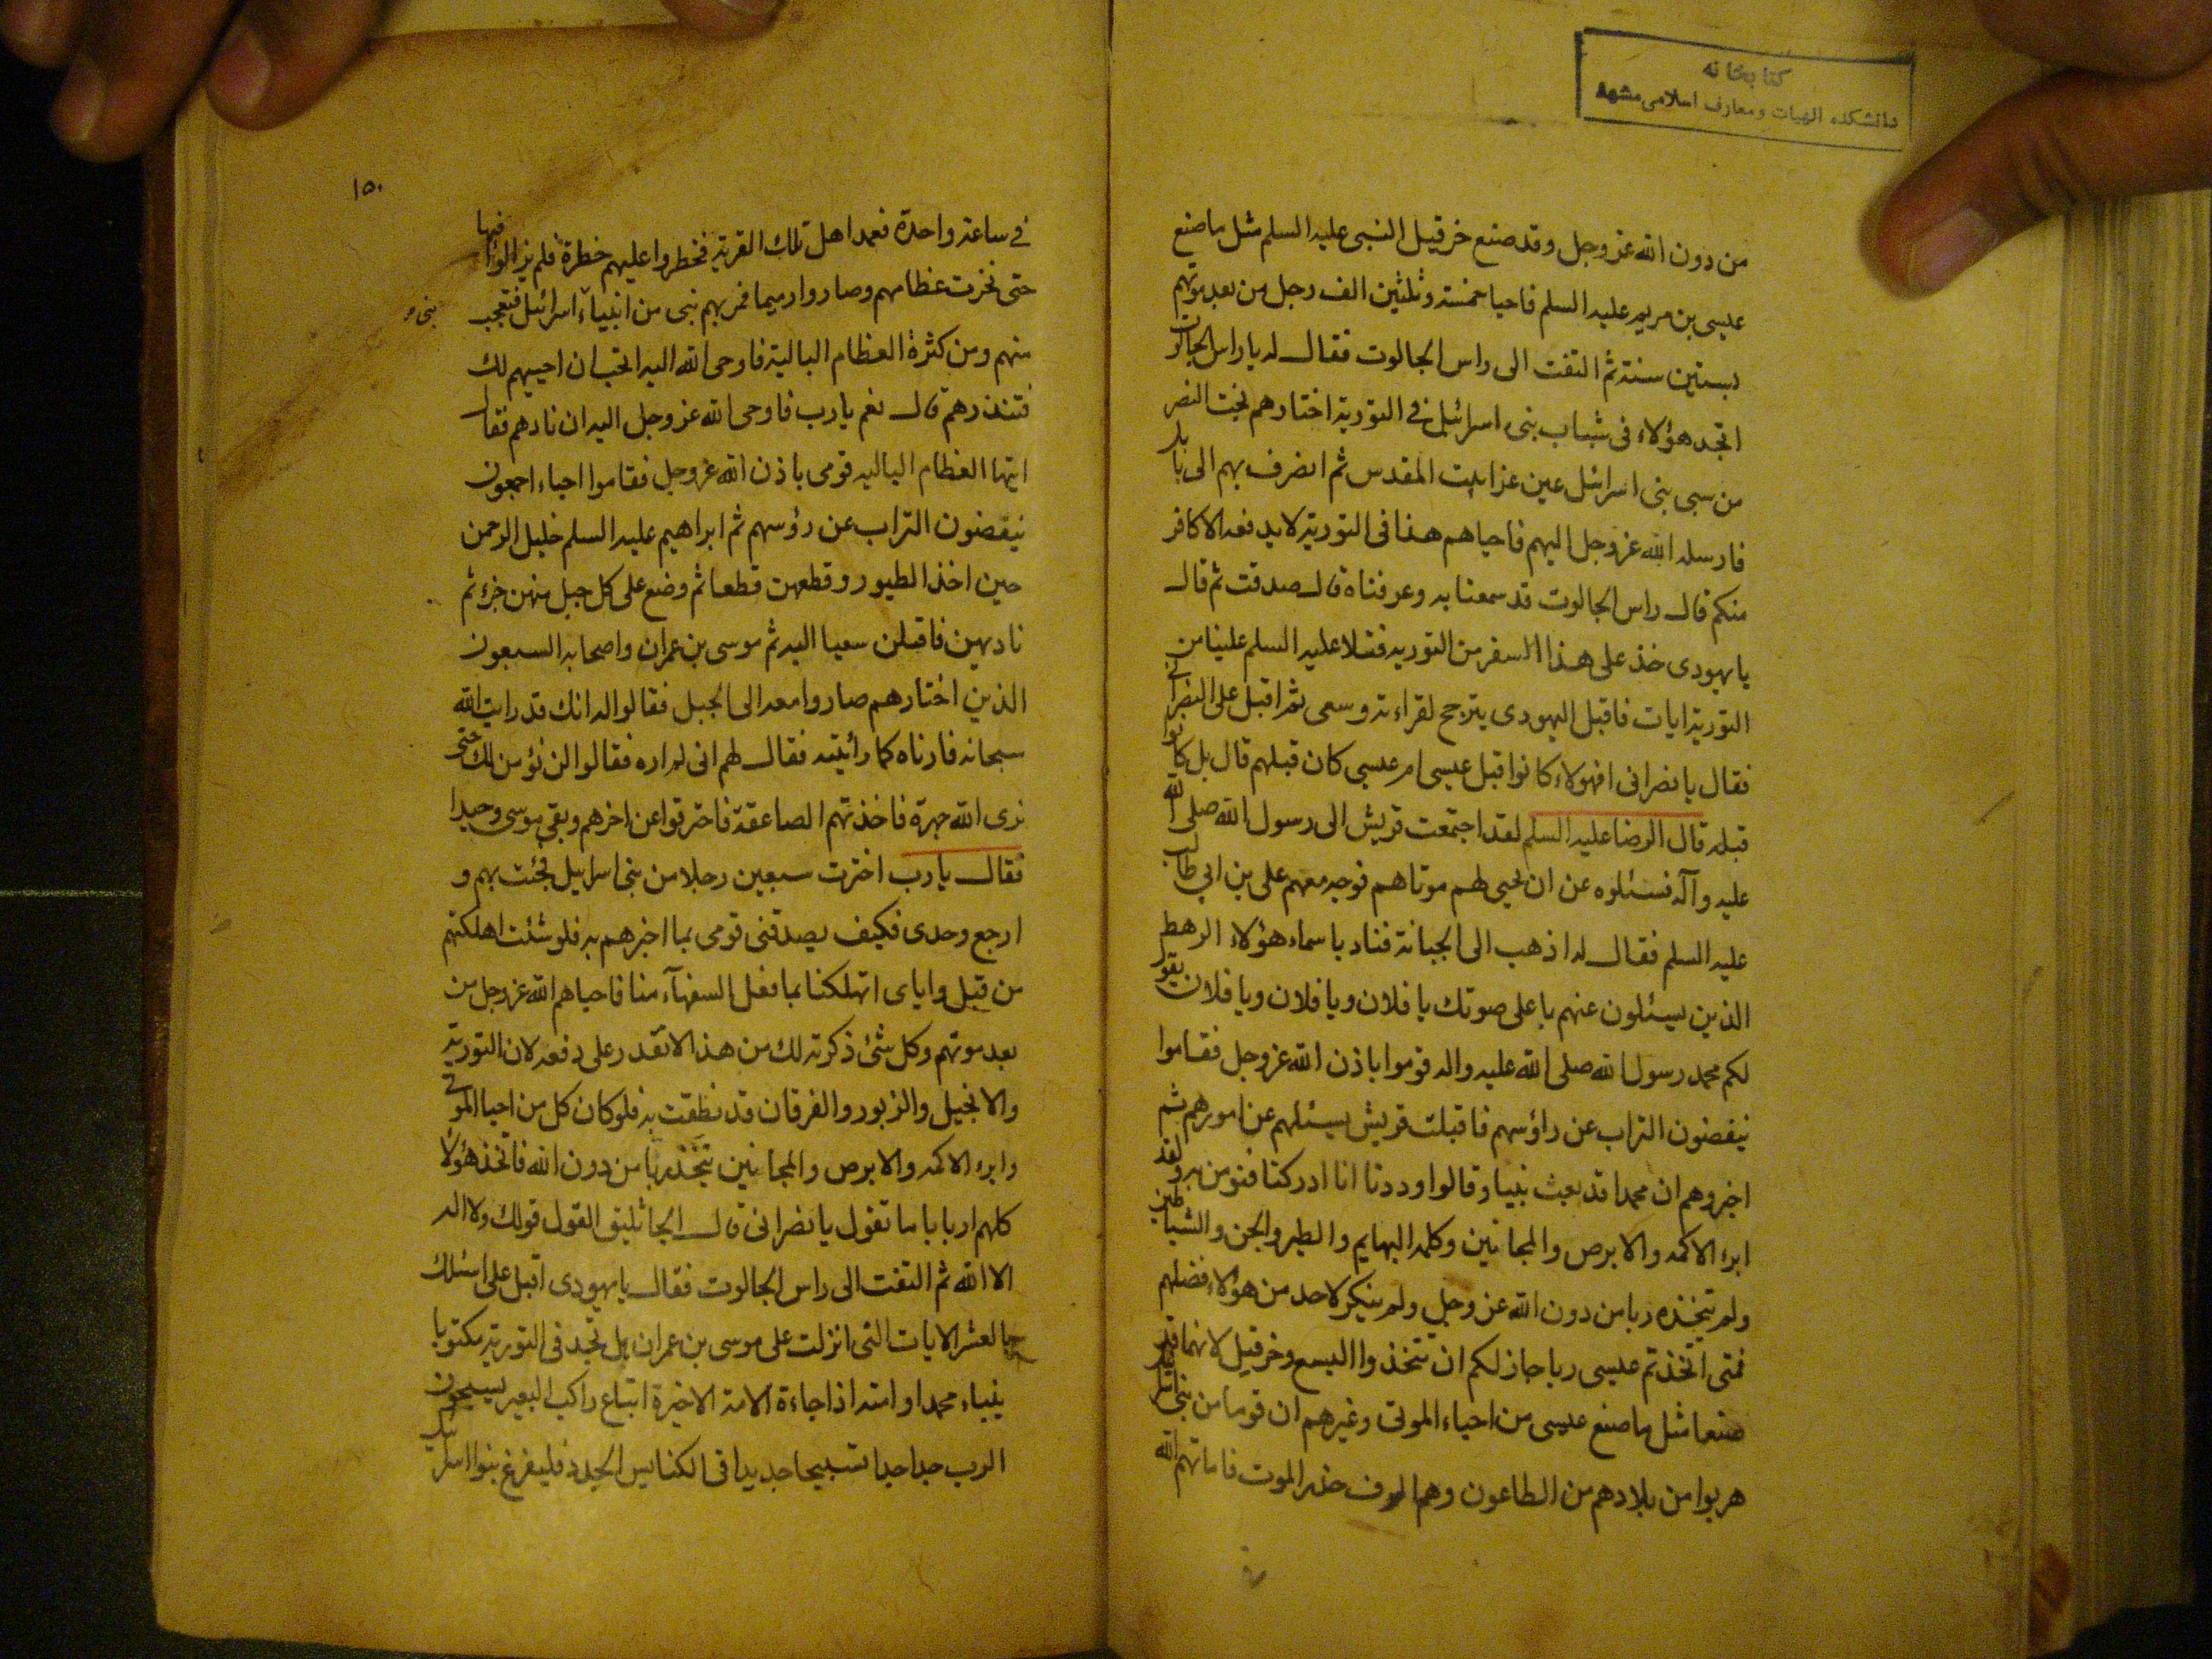 كتابخانه
دانشكده الهيات ومعارف اسلامى مشهد
من دون الله عز وجل وقد صنع خرقيل النبى عليه السلم مثل ما صنع
عيسى بن مريم عليه السلم فاحيا خمسة وثلثين الف رجل من بعد موتهم
بستين سنة ثم التفت الى راس الجالوت فقال له يا راس الجالوت
اتجد هؤلاء فى شباب بنى اسرائيل فى التورية اختارهم بخت النصر
من سبى بنى اسرائيل حين غزا بيت المقدس ثم انصرف بهم الى بابل
فارسله الله عز وجل اليهم فاحياهم هذا فى التورية لا يدفعه الا كافر
منكم قال راس الجالوت قد سمعنا به وعرفناه قال صدقت ثم قال
يا يهودى خذ على هذا السفر من التورية فتلا عليه السلم علينا من
التورية ايات فاقبل اليهودى يترجح لقراءته و ثم اقبل على النصرانى
فقال يا نصرانى افهؤلاء كانوا قبل عيسى ام عيسى كان قبلهم قال بل كانوا
قبله قال الرضا عليه السلم لقد اجتمعت قريش الى رسول الله صلى الله
عليه وآله فسئلوه عن ان يحيى لهم موتاهم فوجه معهم على بن ابي طالب
عليه السلم فقال له اذهب الى الجبانة فناد باسماء هؤلاء الرهط
الذين يسئلون عنهم باعلى صوتك يا فلان ويا فلان ويا فلان يقول
لكم محمد رسول الله صلى الله عليه واله قوموا باذن الله عز وجل فقاموا
ينفضون التراب عن راؤسهم فاقبلت قريش يسئلهم عن امورهم ثم
اخبروهم ان محمدا قد بعث نبيا وقالوا وددنا انا ادركنا فنومن به ولقد
ابرء الاكمه والابرص والمجانين وكلمه البهايم والطير والجن والشياطين
ولم نتخذه ربا من دون الله عز وجل ولم ينكر لاحد من هؤلاء فضلهم
فمتى اتخذتم عيسى ربا جاز لكم ان تتخذوا اليسع وخرقيل لانهما قد
صنعا مثل ما صنع عيسى من احياء الموتى وغيرهم ان قوما من بنى اسرائيل
هربوا من بلادهم من الطاعون وهم الوف حذر الموت فاماتهم الله
١٥٠
فى ساعة واحدة فعمد اهل تلك القرية فخطروا عليهم خطرة فلم يزالوا فيها
حتى نخرت عظامهم وصاروا رميما فمر بهم نبى من انبياء اسرائيل فتعجب
بنى
منهم ومن كثرة العظام البالية فاوحى الله اليه اتحب ان احييهم لك
فتنذرهم قال نعم يا رب فاوحى الله عز وجل اليه ان نادهم فقال
ايتها العظام الباليه قومى باذن الله عز وجل فقاموا احياء اجمعون
ينفضون التراب عن رؤسهم ثم ابراهيم عليه السلم خليل الرحمن
حين اخذ الطيور وقطعهن قطعا ثم وضع على كل جبل منهن جزء ثم
ناديهن فاقبلن سعيا اليه ثم موسى بن عمران واصحابه السبعون
الذين اختارهم صاروا معه الى الجبل فقالوا له انك قد رايت الله
سبحانه فارناه كما رأيته فقال لهم انى لم اره فقالوا لن نؤمن لك حتى
نرى الله جهرة فاخذتهم الصاعقة فاحترقوا عن اخرهم وبقى موسى وحيدا
فقال يا رب اخترت سبعين رجلا من بنى اسرايل فجئت بهم و
ارجع وحدى فكيف يصدقنى قومى بما اخبرهم به فلو شئت اهلكتهم
من قبل واياى اتهلكنا بما فعل السفهآء منا فاحياهم الله عز وجل من
بعد موتهم وكل شئ ذكرته لك من هذا لا تقدر على دفعه لان التورية
والانجيل والزبور والفرقان قد نطقت به فلو كان كل من احيا الموتى
وابرء الاكمه والابرص والمجانين يتخذ ربا من دون الله فاتخذ هؤلاء
كلهم اربابا ما تقول يا نصرانى قال الجاثليق القول قولك ولا اله
الا الله ثم التفت الى راس الجالوت فقال يا يهودى اقبل على اسئلك
بالعشر الايات التى انزلت على موسى بن عمران هل تجد فى التورية مكتوبا
بنباء محمد وامته اذا جاءة الامة الاخيرة اتباع راكب البعير يسبحون
الرب جدا جدا تسبيحا جديدا فى الكنايس الجدد فليفرغ بنوا اسرائيل